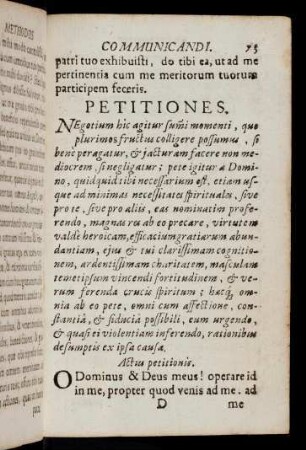 COMMUNICANDI. 75
patri tuo exhibuisti, do tibi ea, ut ad me
pertinentia cum me meritorum tuorum
participem feceris.
PETITIONES.
NEgotium hic agitur sum̃i momenti, quo
plurimos fructus colligere possumus, si
bene peragatur, & facturam facere non me-
diocrem, si negligatur; pete igitur a Domi-
no, quidquid tibi necessarium est, etiam us-
que ad minimas necessitates spirituales, sive
pro te, sive pro aliis, eas nominatim profe-
rendo, magna res ab eo precare, virtutem
valdè heroicam, efficacium gratiarum abun-
dantiam, ejus & tui clarissimam cognitio-
nem, ardentissimam charitatem, masculam
temetipsum vincendi fortitudinem, & ve-
rum ferenda crucis spiritum; hæcq́; om-
nia ab eo pete, omni cum affectione, con-
stantiâ, & fiduciâ possibili, cum urgendo,
& quasi ei violentiam inferendo, rationibus
desumptis ex ipsa causa.
Actus petitionis.
O Dominus & Deus meus! operare id
in me, propter quod venis ad me. ad
D me